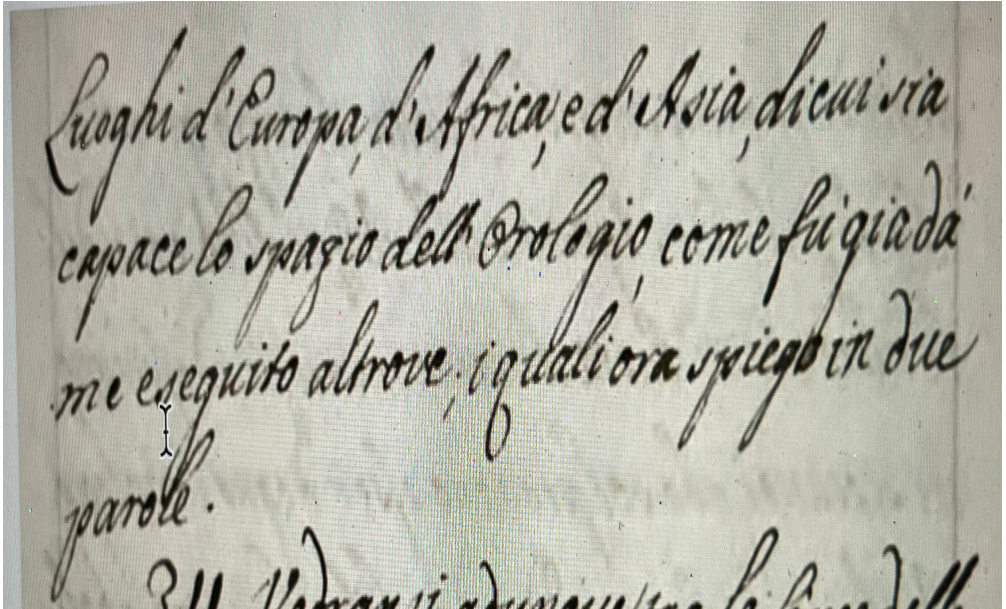 Luoghi d'Europa, d'Africa, e d'Asia, di cui sia
capace lo spazio dell'Orologio, come fù già dà
me eseguito altrove; i quali óra spiego in due
parole.